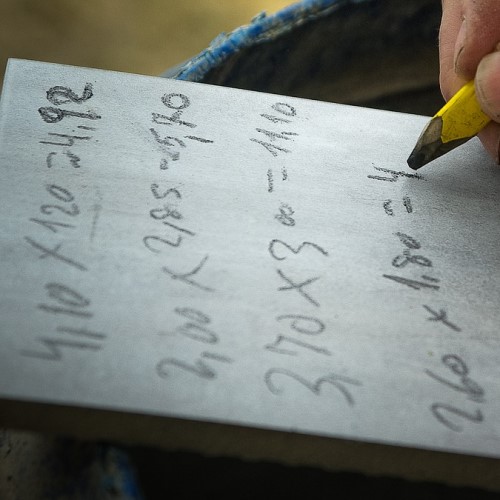 4,10 x 120 = 4,92
2,00 x 2,85 = 5,70
3,70 x 3 00 = 11,10
2,60 x 1,80 = 4